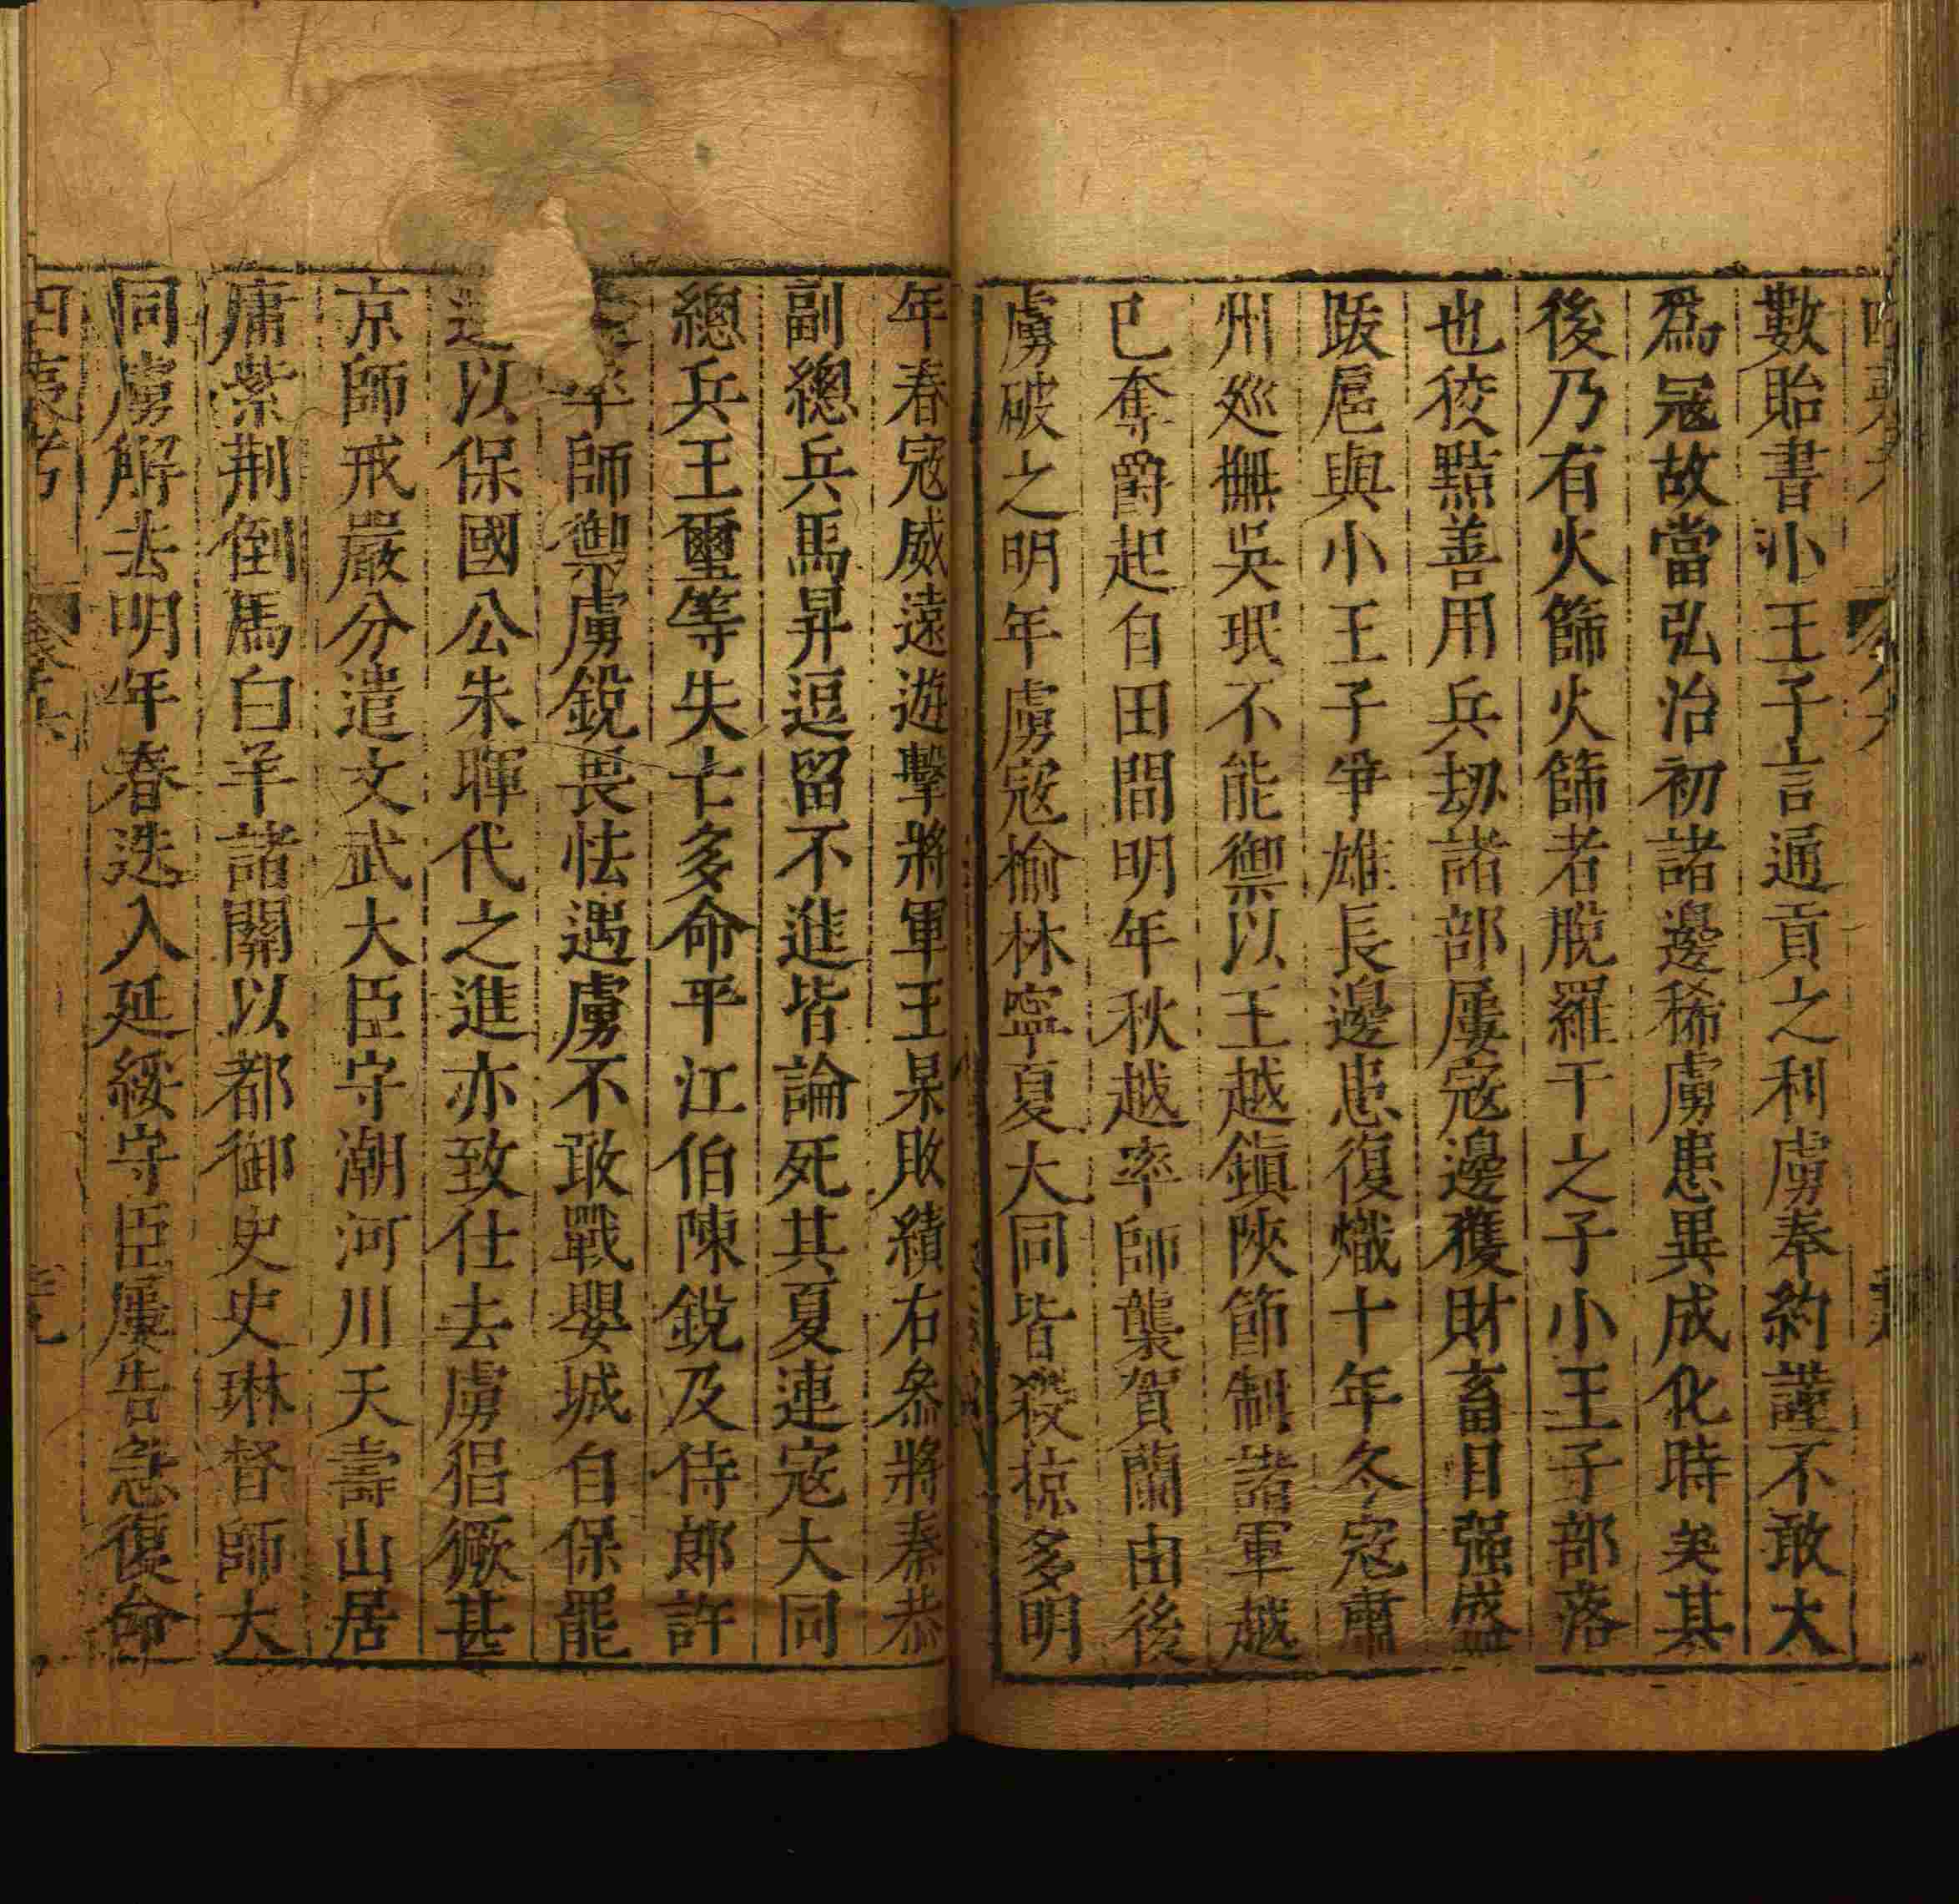 數貽書小王子言通貢之利虜奉約謹不敢大
爲冦故當弘治初諸邊稀虜患異成化時矣其
後乃有火篩火篩者脫羅干之子小王子部落
也狡黠善用兵劫諸部屢寇邊獲財畜目强盛
跋扈與小王子爭雄長邊患復熾十年冬寇肅
州廵撫吳珉不能禦以王越鎮陜節制諸軍越
已奪爵起自田間明年秋越率師襲賀蘭由後
虜破之明年虜寇榆林寧夏大同皆殺掠多明
年春寇威遠遊擊將軍王杲敗績右叅將秦恭
副總兵馬昇逗留不進皆論死其夏連寇大同
總兵王璽等失亡多命平江伯陳銳及侍郎許
率師禦虜銳畏怯遇虜不敢戰嬰城自保罷
還以保國公朱暉代之進亦致仕去虜猖獗甚
京師戒嚴分遣文武大臣守潮河川天壽山居
庸紫荆倒馬白羊諸關以都御史史琳督師大
同虜解去明年春迭入延綏守臣屢告急復命
四夷考